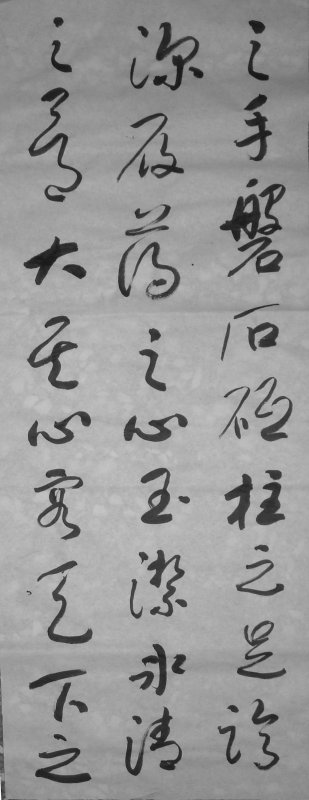 之手磐石砥柱之足臨
深履薄之心玉潔冰清
之大其心容天下之